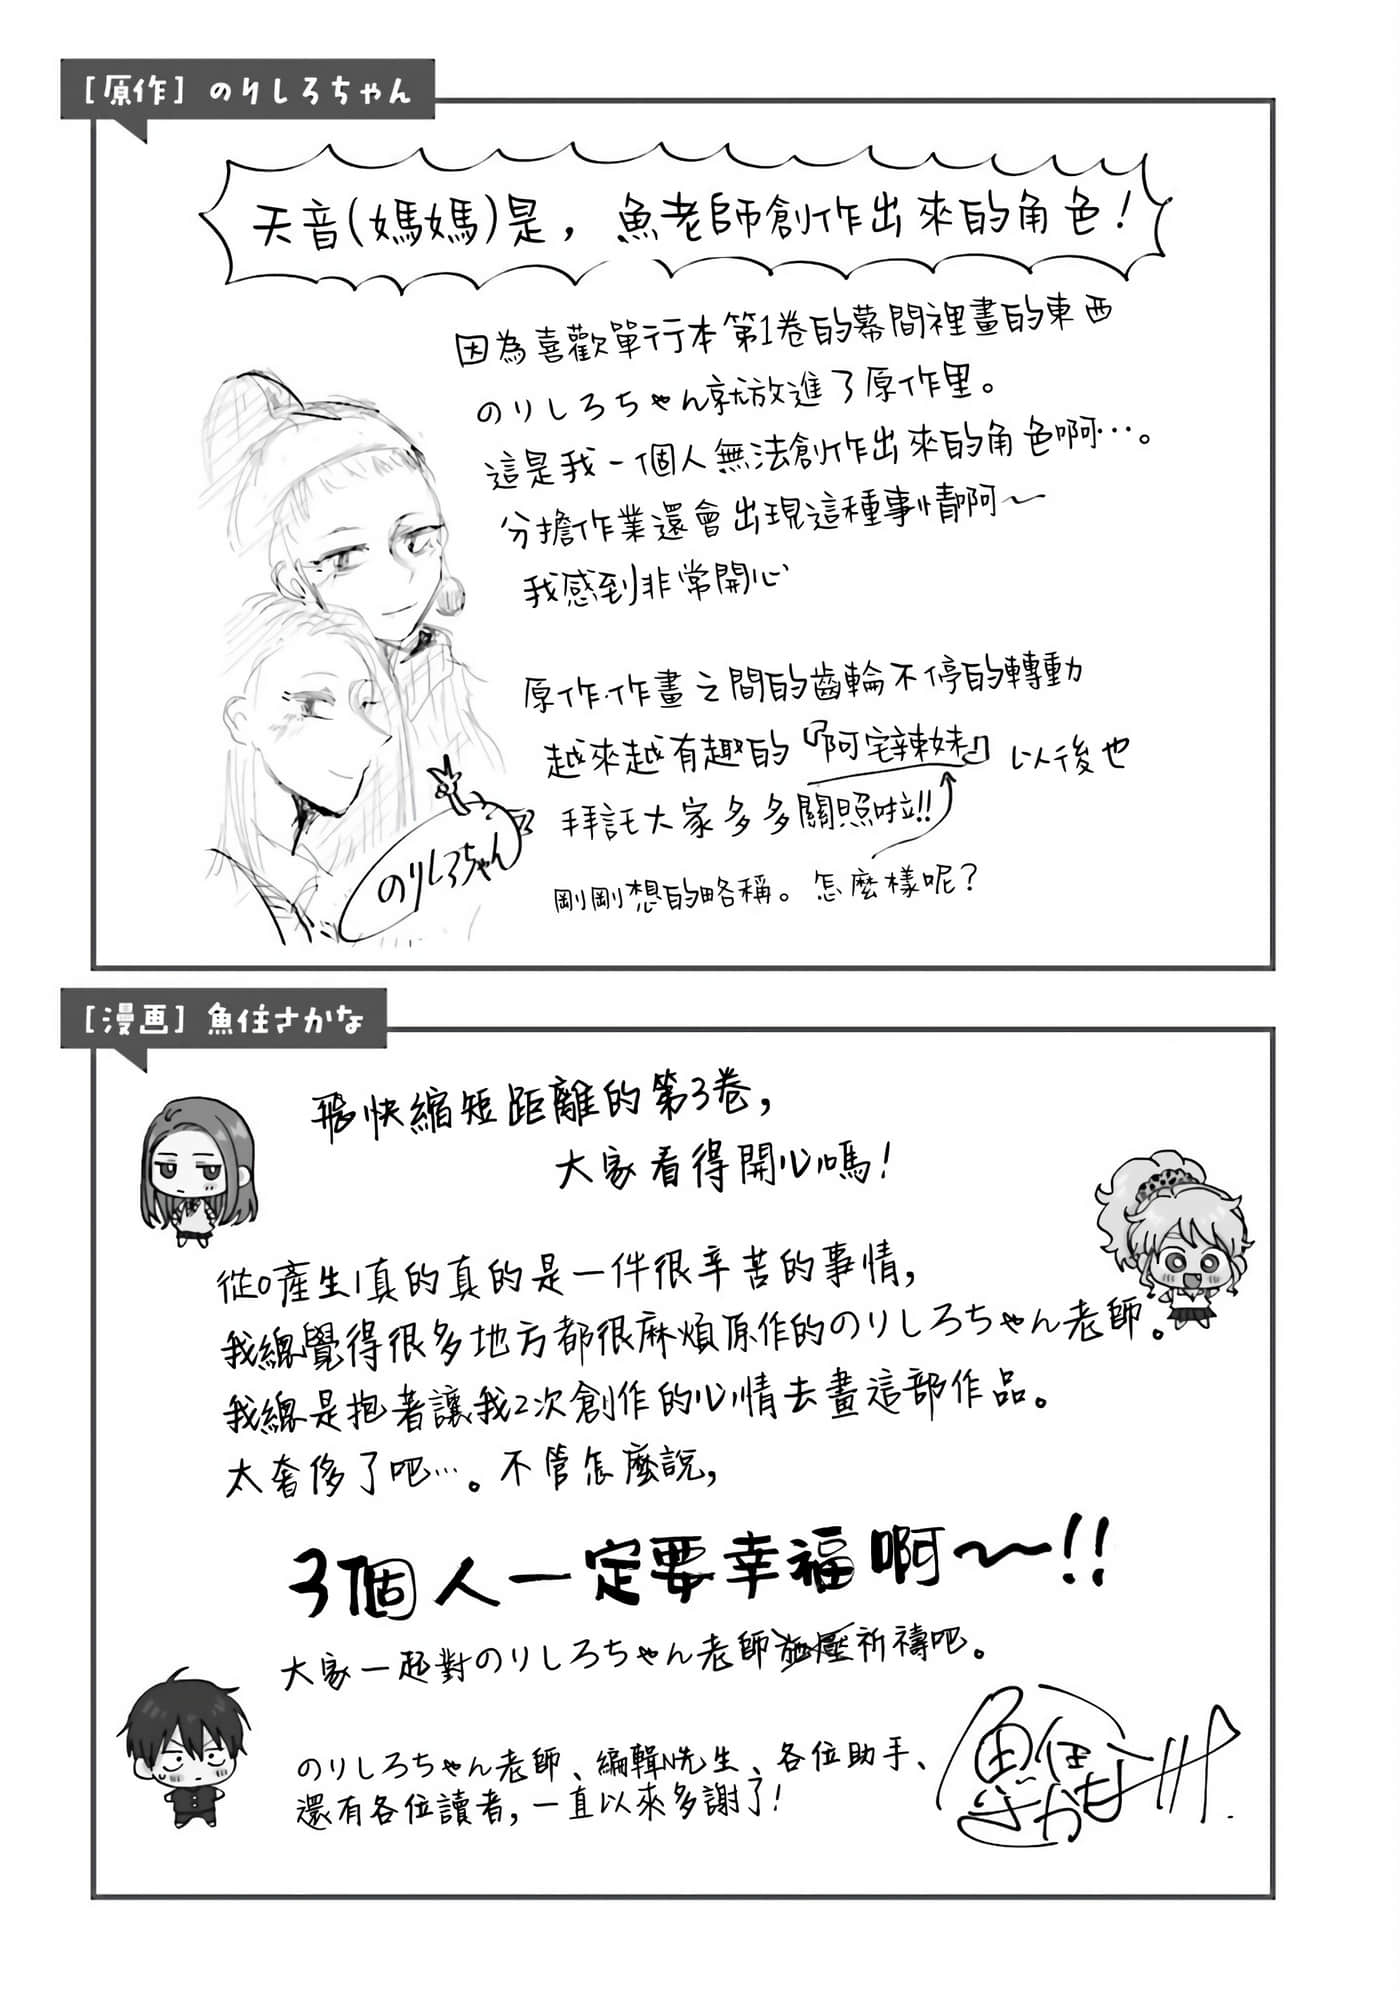 [原作] のりしろちゃん
天音(媽媽)是，魚老師創作出來的角色!
因為喜歡單行本第1卷的幕間裡畫的東西
のりしろちゃん就放進了原作里。
這是我一個人無法創作出來的角色啊…。
分擔作業還會出現這種事情啊～
我感到非常開心
原作・作畫之間的齒輪不停的轉動
越來越有趣的『阿宅辣妹』以後也
拜託大家多多關照啦!!
剛剛想的略稱。怎麼樣呢?
のりしろちゃん
[漫画] 魚住さかな
飛快縮短距離的第3卷，
大家看得開心嗎!
從0產生1真的真的是一件很辛苦的事情，
我總覺得很多地方都很麻煩原作的のりしろちゃん老師。
我總是抱著讓我2次創作的心情去畫這部作品。
太奢侈了吧…。不管怎麼說，
3個人一定要幸福啊～～!!
大家一起對のりしろちゃん老師施壓祈禱吧。
のりしろちゃん老師、編輯N先生、各位助手、
還有各位讀者，一直以來多謝了!
魚住
さかな